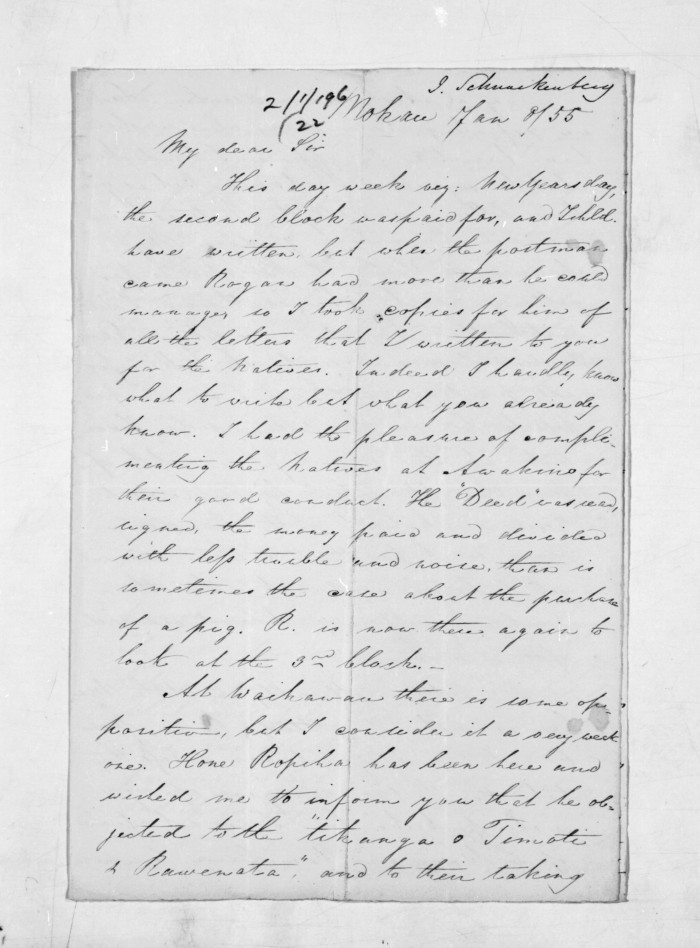 J. Schnackenberg
2/1/196
/22
Mokau Jan 8/55
My dear Sir
This day week viz: New Years day,
the second block was paid for, and I shld.
have written, but when the postman
came Rogan had more than he could
manage, so I took copies for him of
all the letters that I written to you
for the Natives. Indeed I hardly know
what to write but what you already
know. I had the pleasure of compli-
menting the Natives at Awakino for
their good conduct. The "Deed" was read,
signed, the money paid and divided
with less trouble and noise, than is
sometimes the case about the purchase
of a pig. R. is now there again to
look at the 3rd block. –
At Waikawau there is some op-
position, but I consider it a very weak
one. Hone Ropiha has been here and
wished me to inform you that he ob-
jected to the "tikanga o Timoti
& Rawenata", and to their taking